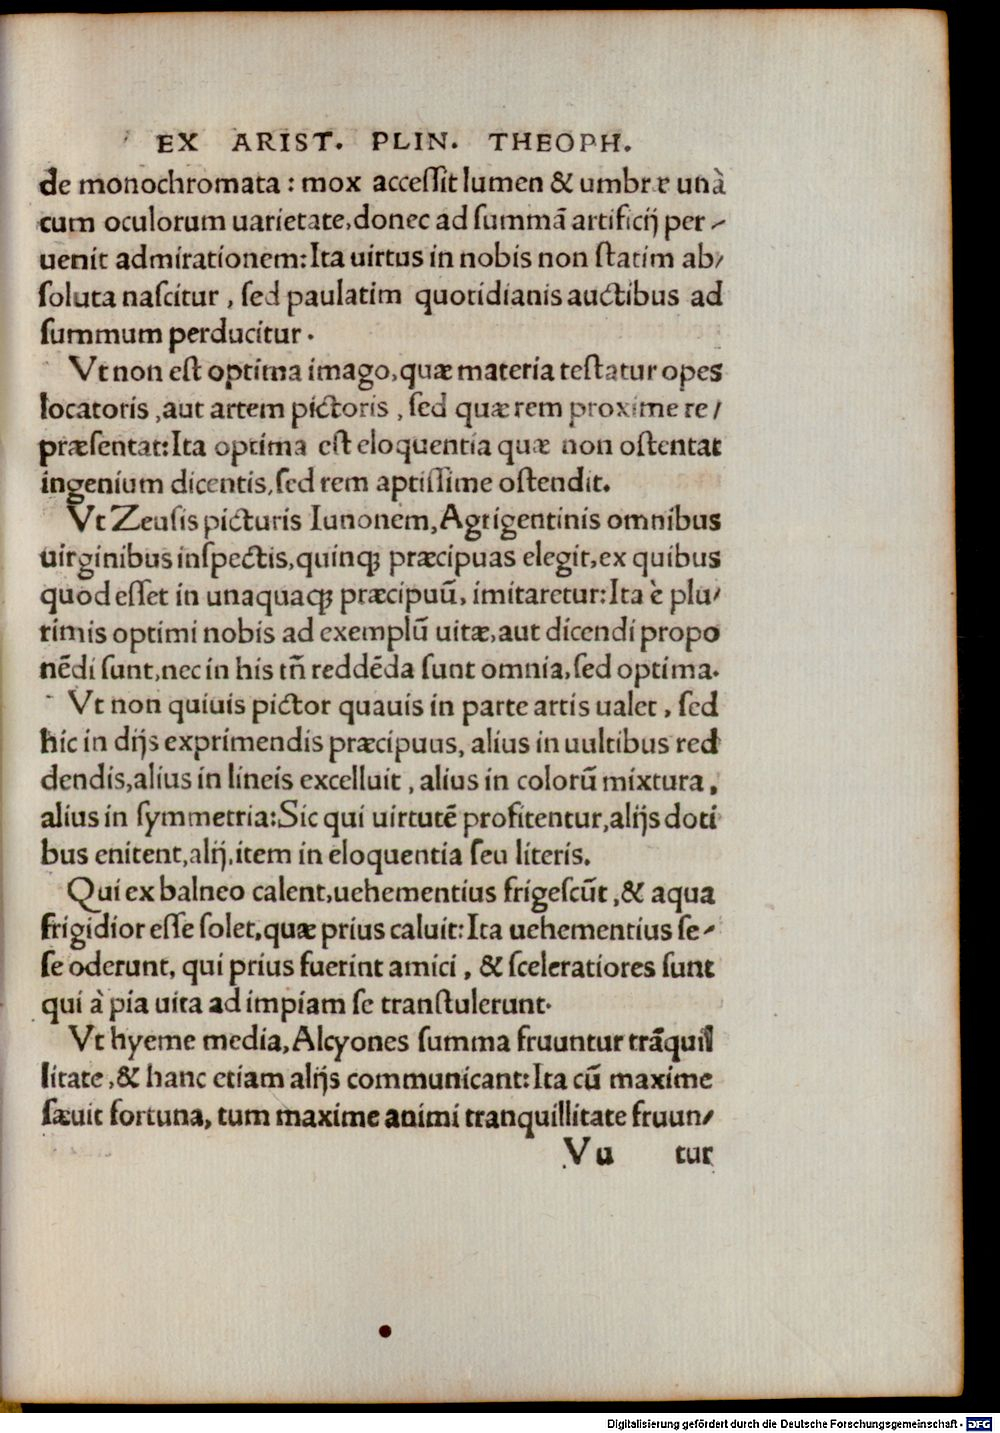 EX ARIST. PLIN. THEOPH.
de monochromata : mox accessit lumen & umbræ unà
cum oculorum uarietate, donec ad summā artificij per-
uenit admirationem: Ita uirtus in nobis non statim ab/
soluta nascitur, sed paulatim quotidianis auctibus ad
summum perducitur.
Vt non est optima imago, quæ materia testatur opes
locatoris, aut artem pictoris, sed quæ rem proxime re/
præsentat: Ita optima est eloquentia quæ non ostentat
ingenium dicentis, sed rem aptissime ostendit.
Vt Zeusis picturis Iunonem, Agrigentinis omnibus
uirginibus inspectis, quinq; præcipuas elegit, ex quibus
quod esset in unaquaq; præcipuū, imitaretur: Ita è plu/
rimis optimi nobis ad exemplū uitæ, aut dicendi propo
nēdi sunt, nec in his tñ reddēda sunt omnia, sed optima.
Vt non quiuis pictor quauis in parte artis ualet, sed
hic in dijs exprimendis præcipuus, alius in uultibus red
dendis, alius in lineis excelluit, alius in colorū mixtura,
alius in symmetria: Sic qui uirtutē profitentur, alijs doti
bus enitent, alij, item in eloquentia seu literis.
Qui ex balneo calent, uehementius frigescūt, & aqua
frigidior esse solet, quæ prius caluit: Ita uehementius se-
se oderunt, qui prius fuerint amici, & sceleratiores sunt
qui à pia uita ad impiam se transtulerunt.
Vt hyeme media, Alcyones summa fruuntur trāquil
litate, & hanc etiam alijs communicant: Ita cū maxime
sæuit fortuna, tum maxime animi tranquillitate fruun/
Vu tur
Digitalisierung gefördert durch die Deutsche Forschungsgemeinschaft - DFG